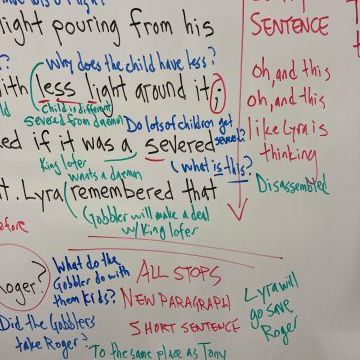 light pouring from his
SENTENCE
Why does the child have less?
with (less light around it;
oh, and this
child is different
severed from daemon
oh, and this
Do lots of children get
severed?
like Lyra is
thinking
ed if it was a severed
(what is this?
King Iofer
wants a daemon
Disassembled
t. Lyra (remembered that
Gobbler will make a deal
w/King Iofer
before
Roger?
What do the
Gobbler do with
them kids?
ALL STOPS
NEW PARAGRAPH
SHORT SENTENCE
Lyra will
go save
Roger
Did the Gobblers
take Roger?
To the same place as Tony